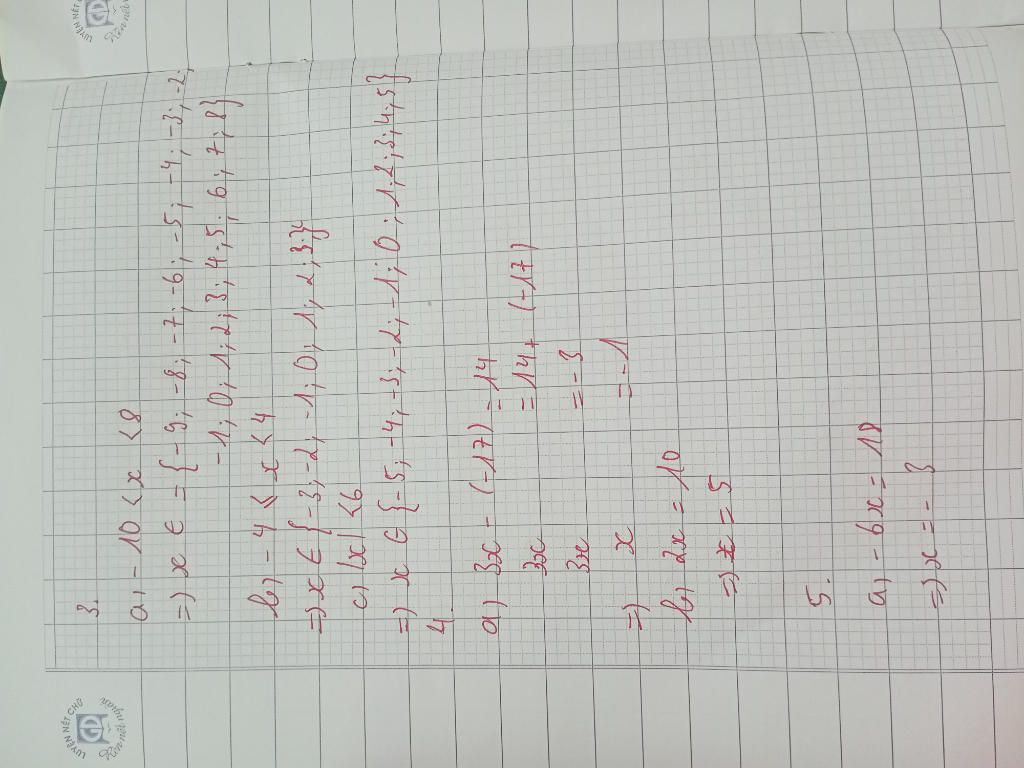 LUYỆN NÉT CHỮ
Rèn nết người
3.
a, -10 < x < 8
=> x ∈ = {-9; -8; -7; -6; -5; -4; -3; -2;
-1; 0; 1; 2; 3; 4; 5; 6; 7; 8}
b, -4 ≤ x < 4
=> x ∈ {-3; -2; -1; 0; 1; 2; 3;}
c, |x| < 6
=> x ∈ {-5; -4; -3; -2; -1; 0; 1; 2; 3; 4; 5}
4.
a, 3x - (-17) = 14
3x = 14 + (-17)
3x = -3
=> x = -1
b, 2x = 10
=> x = 5
5.
a, -6x = 18
=> x = -3
LUYỆN NÉT CHỮ
Rèn nết